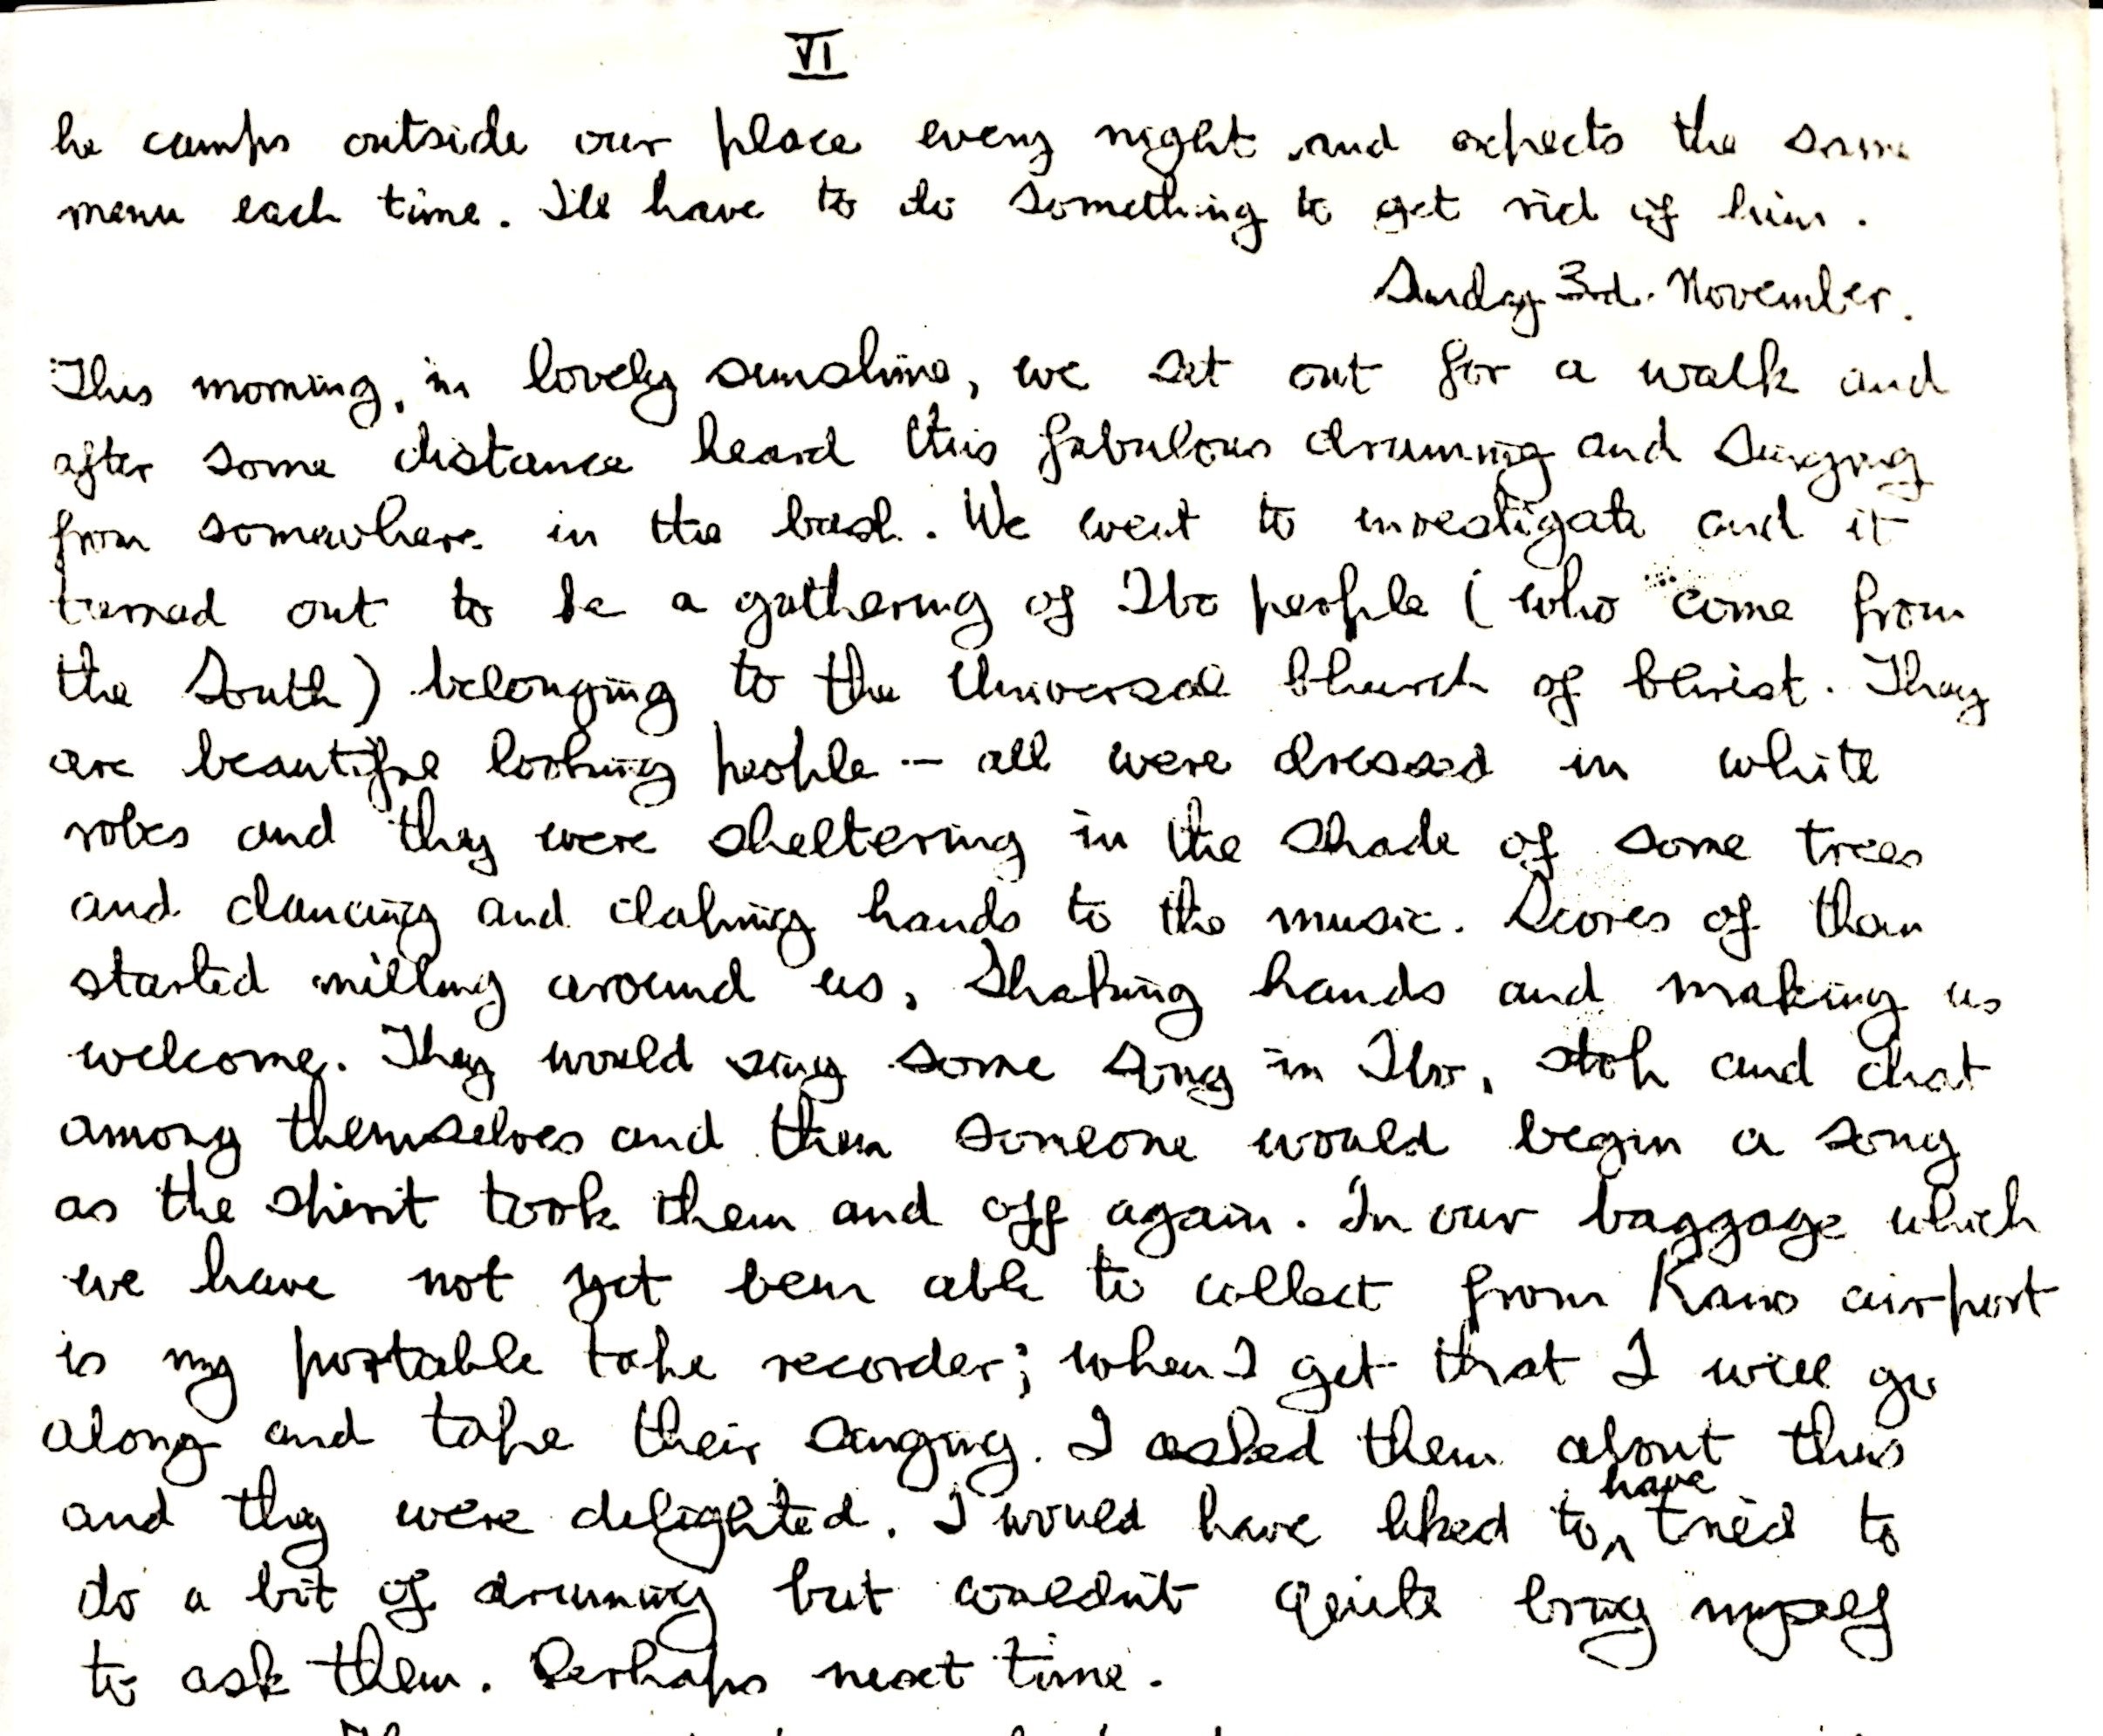 VI
he camps outside our place every night and expects the same
menu each time. I'll have to do something to get rid of him.
Sunday 3rd. November.
This morning, in lovely sunshine, we set out for a walk and
after some distance heard this fabulous druming and singing
from somewhere in the bush. We went to investigate and it
turned out to be a gathering of Ibo people (who come from
the South) belonging to the Universal Church of Christ. They
are beautiful looking people - all were dressed in white
robes and they were sheltering in the shade of some trees
and dancing and claping hands to the music. Scores of them
started milling around us, shaking hands and making us
welcome. They would sing some song in Ibo, stop and chat
among themselves and then someone would begin a song
as the spirit took them and off again. In our baggage which
we have not yet been able to collect from Kano airport
is my portable tape recorder; when I get that I will go
along and tape their singing. I asked them about this
and they were delighted. I would have liked to have tried to
do a bit of druming but couldn't quite bring myself
to ask them. Perhaps next time.